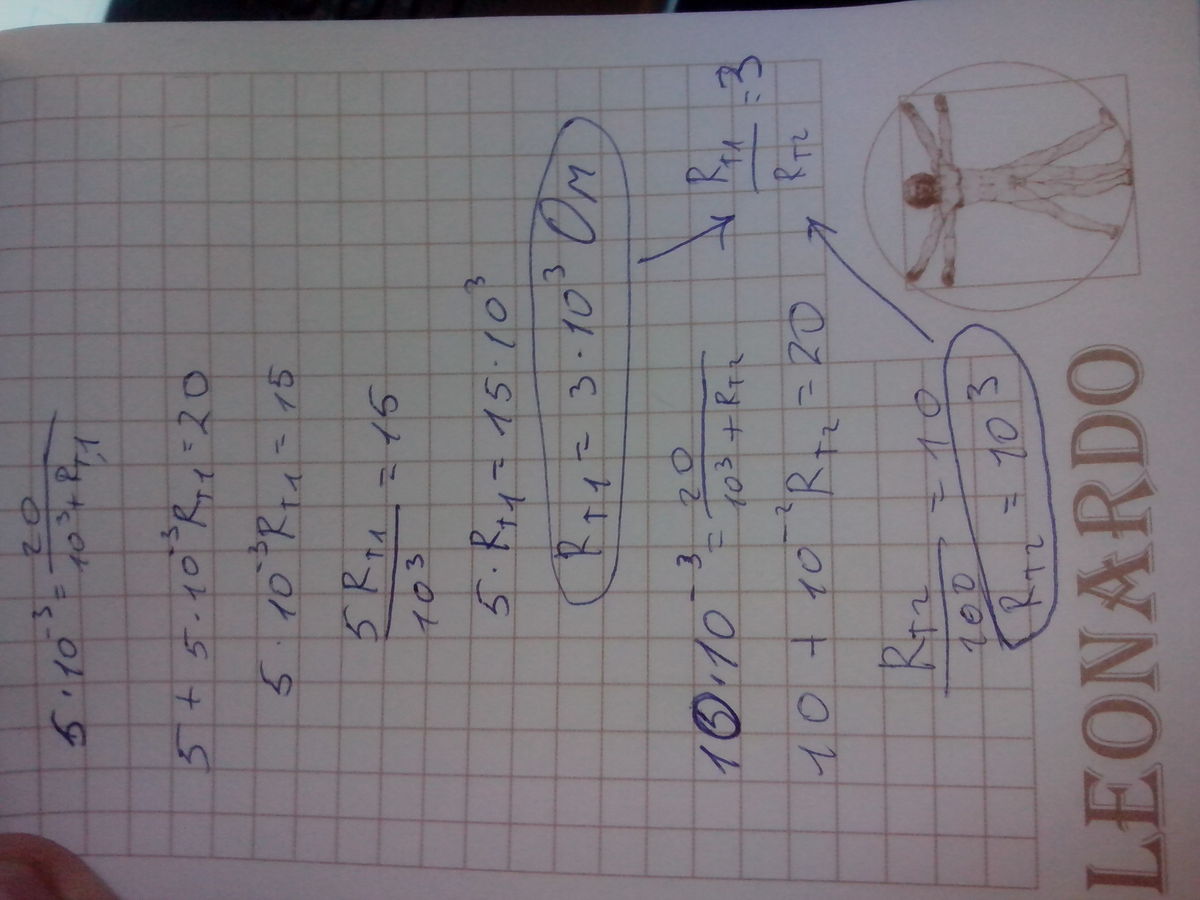 5·10⁻³ = 20/(10³ + R_T1)
5 + 5·10⁻³R_T1 = 20
5·10⁻³R_T1 = 15
5R_T1/10³ = 15
5·R_T1 = 15·10³
R_T1 = 3·10³ Ом
→ R_T1/R_T2 = 3
10·10⁻³ = 20/(10³ + R_T2)
10 + 10⁻²R_T2 = 20
R_T2/100 = 10
R_T2 = 10³
LEONARDO